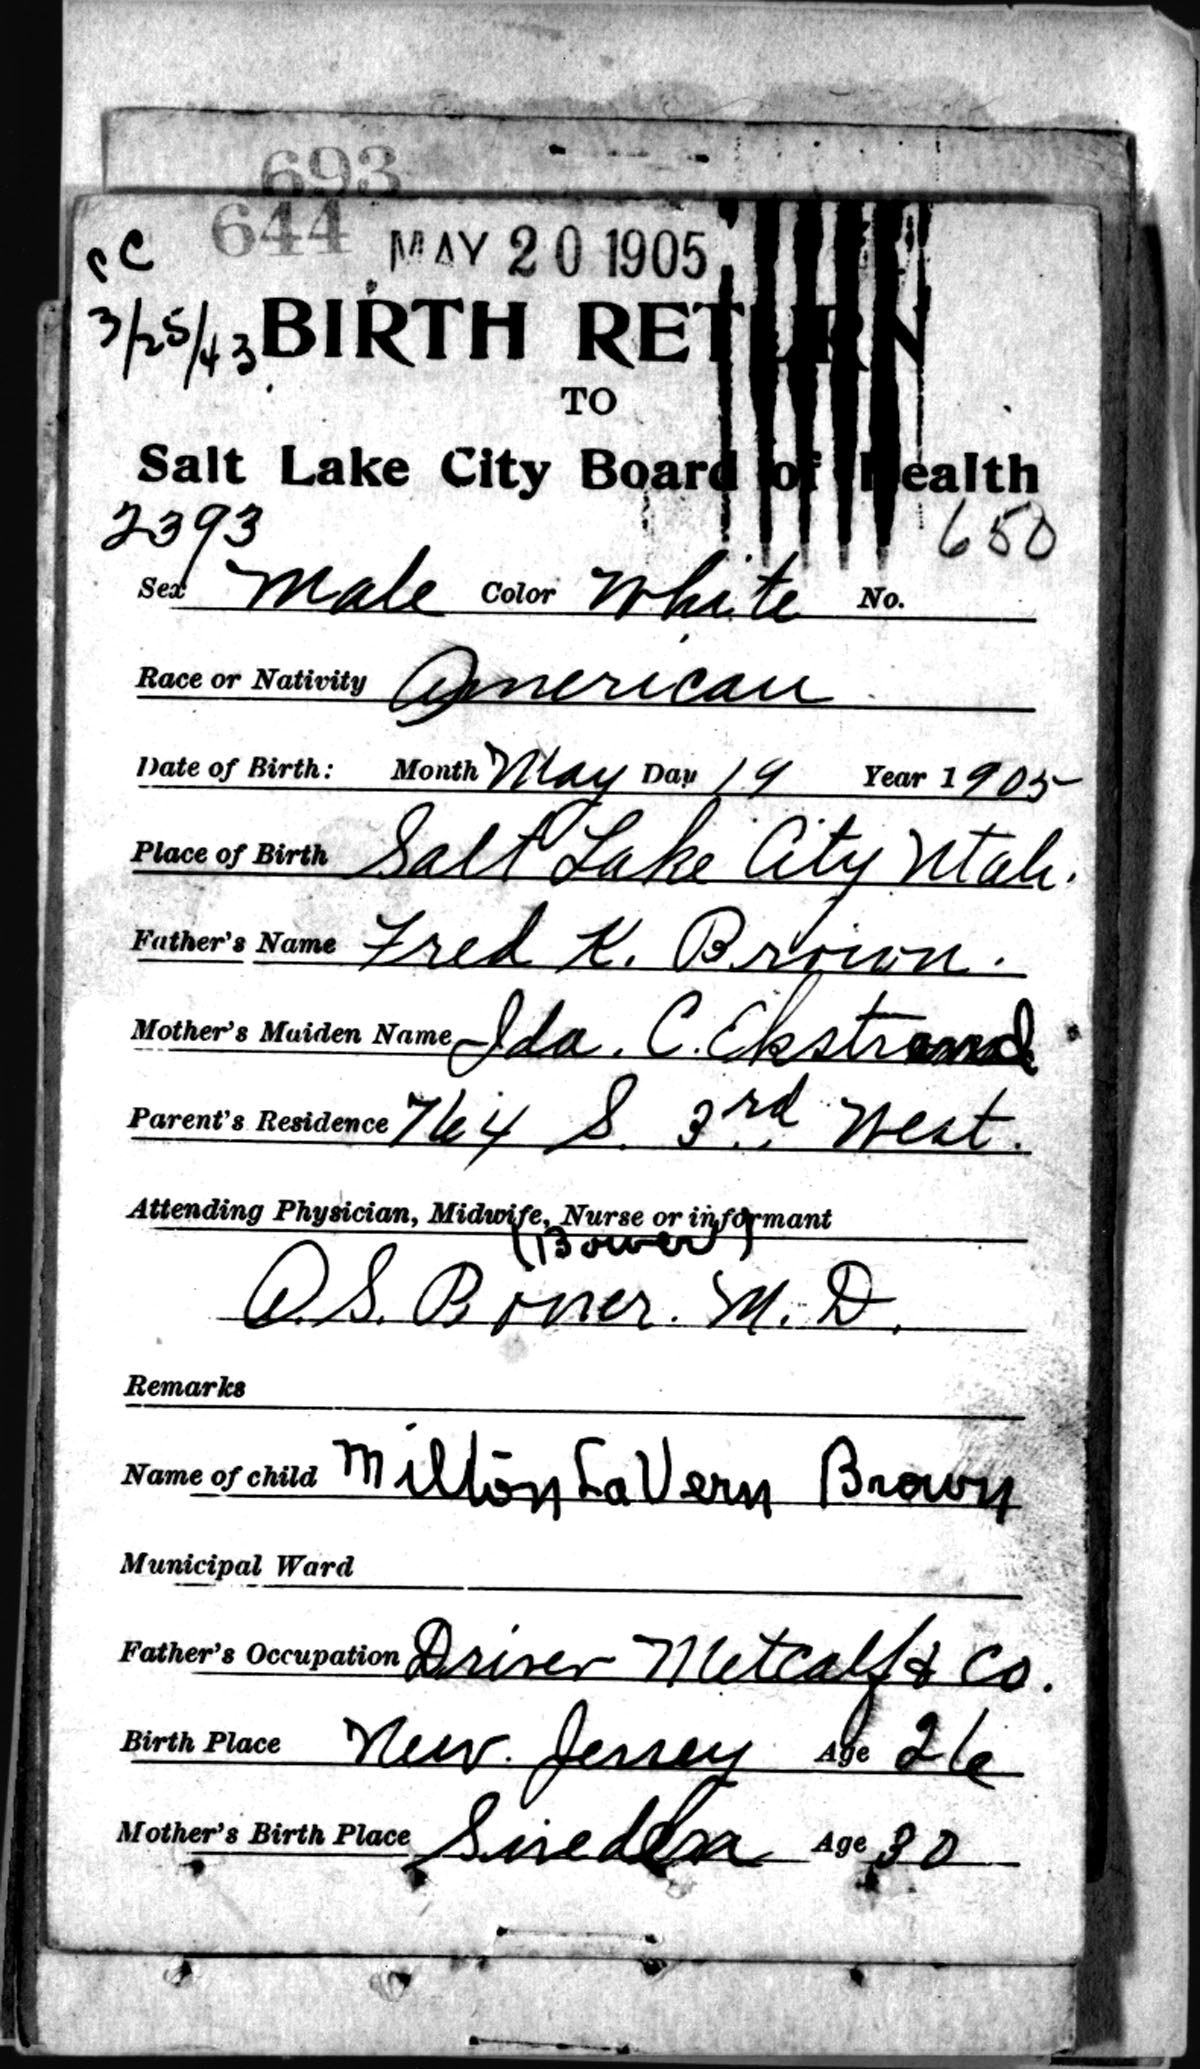 693
644 MAY 20 1905
CC
3/25/43 BIRTH RETURN
TO
Salt Lake City Board of Health
2393 650
Sex Male Color White No.
Race or Nativity American
Date of Birth: Month May Day 19 Year 1905
Place of Birth Salt Lake City Utah.
Father's Name Fred K. Brown.
Mother's Maiden Name Ida. C. Ekstrand
Parent's Residence 764 S. 3rd West.
Attending Physician, Midwife, Nurse or informant
(Bower)
A.S. Bower. M.D.
Remarks
Name of child Milton LaVern Brown
Municipal Ward
Father's Occupation Driver Metcalf & Co.
Birth Place New. Jersey Age 26
Mother's Birth Place Sweden Age 30